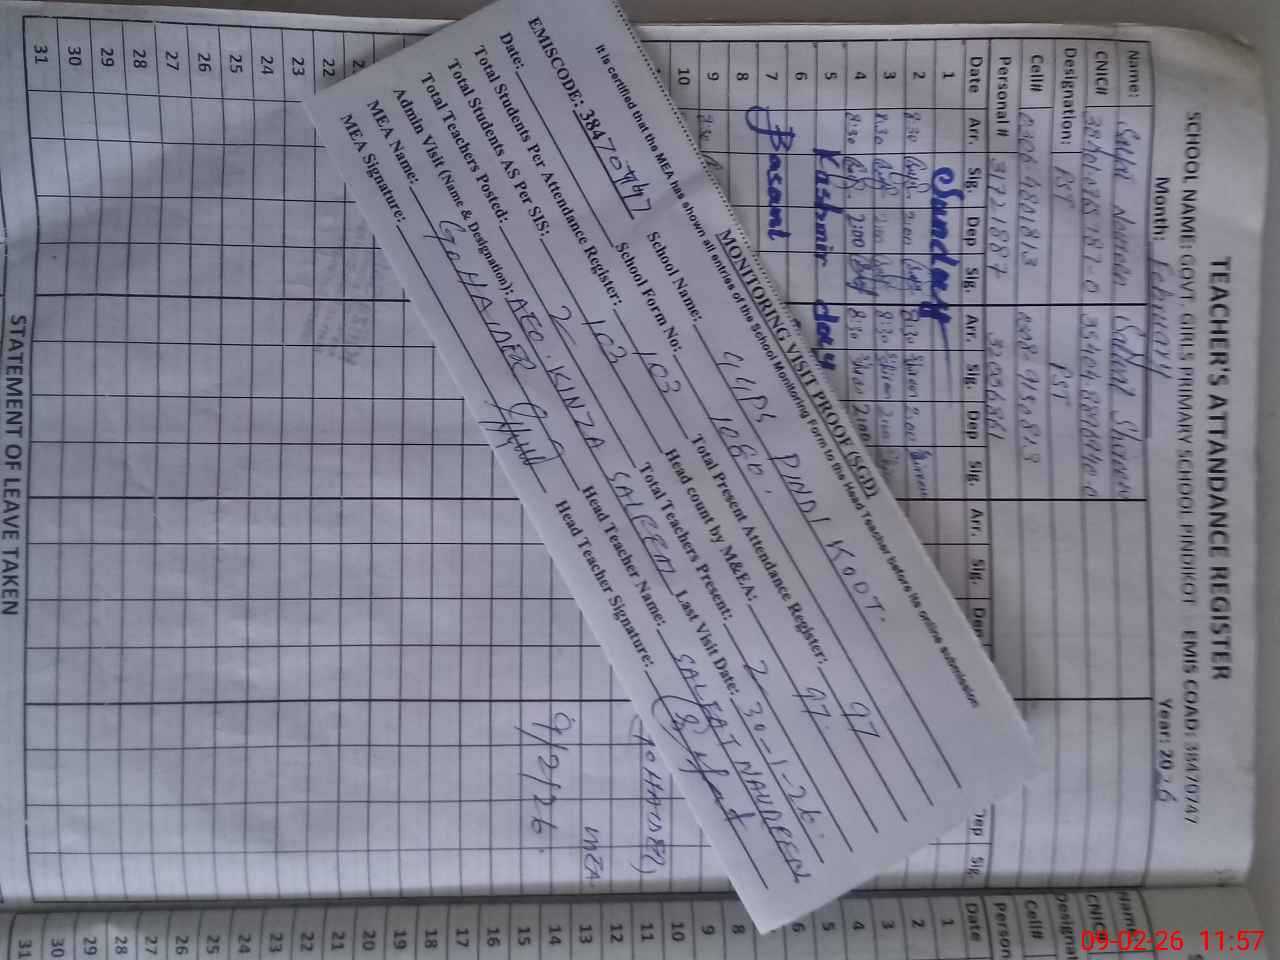 TEACHER'S ATTANDANCE REGISTER
SCHOOL NAME: GOVT. GIRLS PRIMARY SCHOOL PINDIKOT EMIS COAD: 38470747
Month: February Year: 2026
Name: Shireen
CNIC#
Designation: PST PST
Cell#
Personal # 31721887
Date Arr. Sig. Dep Sig. Arr. Sig. Dep Sig. Arr. Sig. Dep
Dep Sig.
1 Sunday
2 8:30 2:00 8:30 Shireen 2:00
3 8:30 2:00 8:30 Shireen 2:00
4 8:30 2:00 8:30 2:00
5 Kashmir day
6
7 Basant
8
9
10
22
23
24
25
26
27
28
29
30
31
STATEMENT OF LEAVE TAKEN
It is certified that the MEA has shown all entries of the School Monitoring Form to the Head Teacher before its online submission
MONITORING VISIT PROOF (SGD)
EMISCODE: 38470747 School Name: GGPS PINDI KOOT.
Date: School Form No: 1080.
Total Students Per Attendance Register: 103 Total Present Attendance Register: 97
Total Students AS Per SIS: 103 Head count by M&EA: 97
Total Teachers Posted: 2 Total Teachers Present: 2
Admin Visit (Name & Designation): AEO. KINZA SALEEM Last Visit Date: 30-1-26.
MEA Name: GO HAIDER Head Teacher Name: SALFAT NAUREEN
MEA Signature: Head Teacher Signature:
MEA
9/2/26.
Name
CNIC
Designat
Cell#
Person
Date
1
2
3
4
5
6
8
9
10
11
12
13
14
15
16
17
18
19
20
21
22
23
24
25
26
27
28
29
30
31
09-02-26 11:57